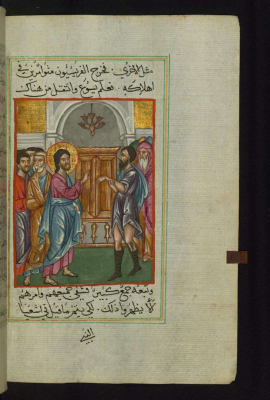 مثل الاخرى فخرج الفريسيون متوامرين في
اهلاكه فعلم يسوع وانتقل من هناك
وتبعه جمع كبير فشفى جميعهم وامرهم
الا يظهروا ذلك لكي يتم ما قيل في اشعيا
النبي